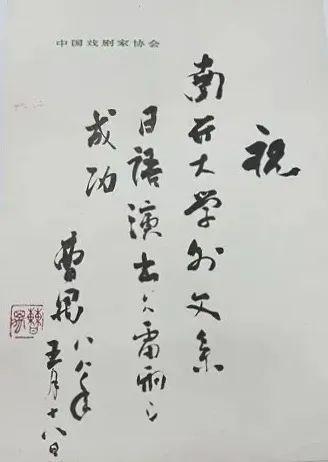 中国戏剧家协会
祝
南开大学外文系
日语演出《雷雨》
成功
曹禺
八八年
五月十八日
曹禺